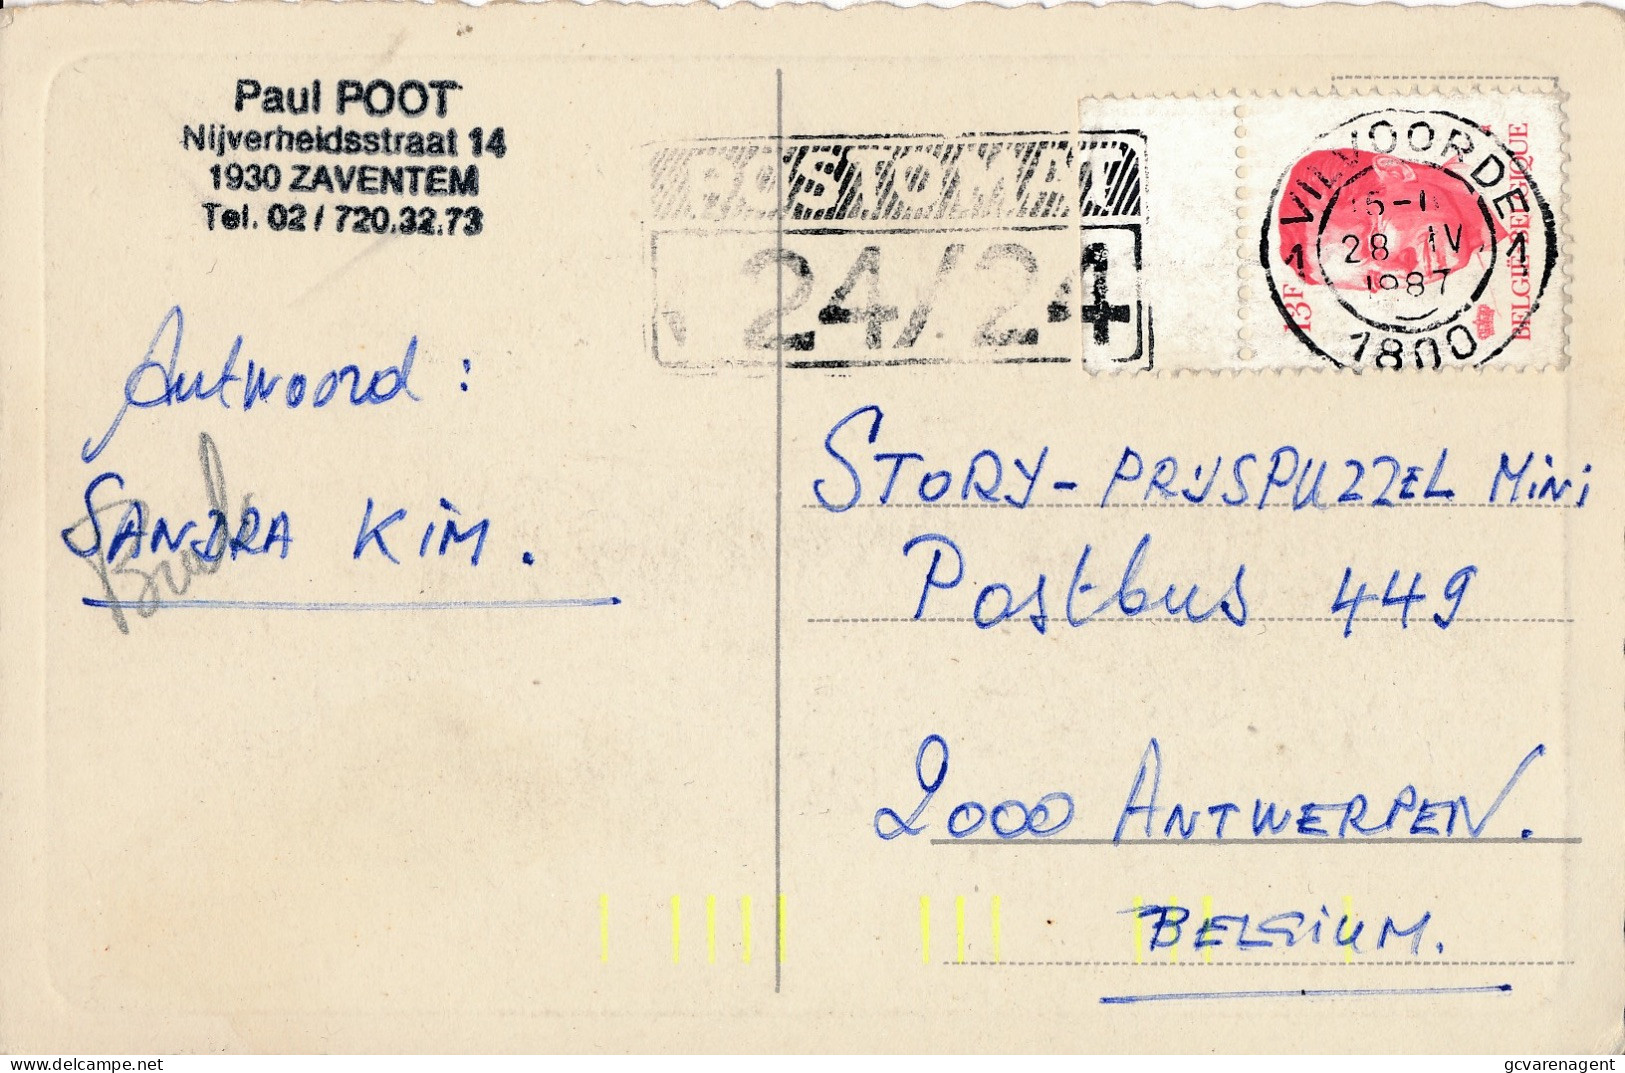 Paul POOT
Nijverheidsstraat 14
1930 ZAVENTEM
Tel. 02 / 720.32.73
POSTOMAT
24/24
VILVOORDE
28 IV
1987
1 1
1800
13F
BELGIË-BELGIQUE
Antwoord :
SANDRA KIM.
STORY-PRIJSPUZZEL MiNi
Postbus 449
2000 ANTWERPEN.
BELGIUM.
delcampe.net
gcvarenagent